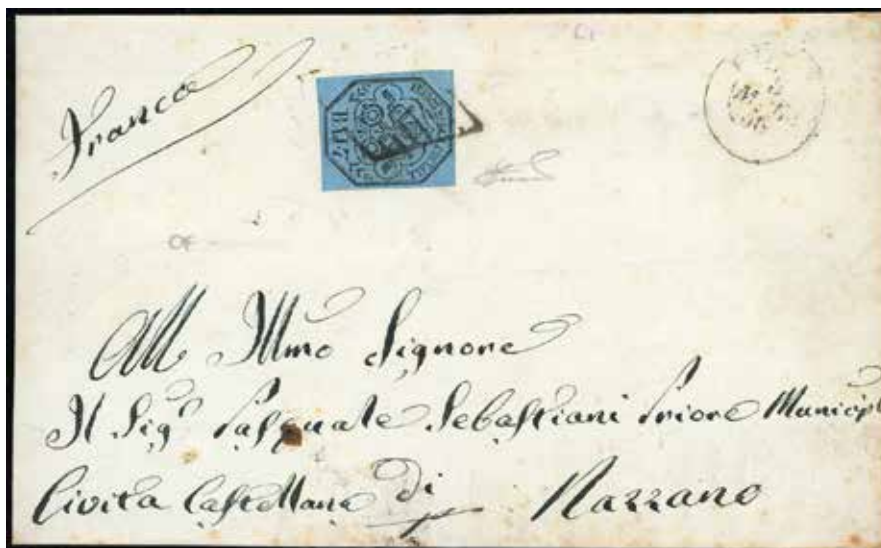 Franca
BAJ 7
All Illmo Signore
Il Sigr Pasquale Sebastiani Priore Municip
Civita Castellana di Nazzano